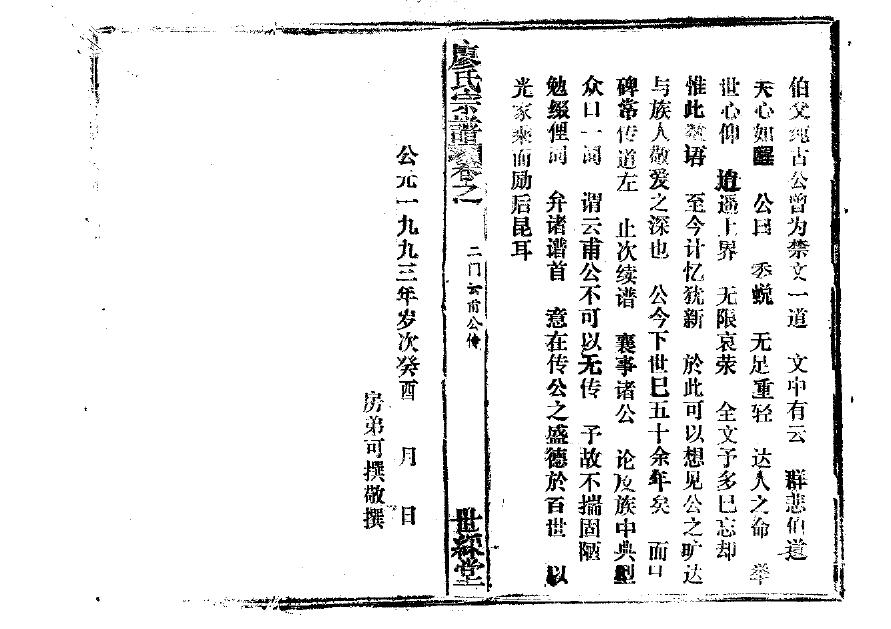 伯父绳古公曾为禁文一道 文中有云 群悲伯道
天心如醒 公曰 委蜕 无足重轻 达人之命 举
世心仰 逍遥上界 无限哀荣 全文予多已忘却
惟此 语 至今计忆犹新 於此可以想见公之旷达
与族人敬爱之深也 公今下世已五十余年矣 而口
碑常传道左 止次续谱 襄事诸公 论及族中典型
众口一词 谓云甫公不可以无传 予故不揣固陋
勉缀俚词 弁诸谱首 意在传公之盛德於百世 以
光家乘而励后昆耳
廖氏宗谱 卷之一
二门云甫公传
世綵堂
公元一九九三年岁次癸酉 月 日
房弟可撰敬撰